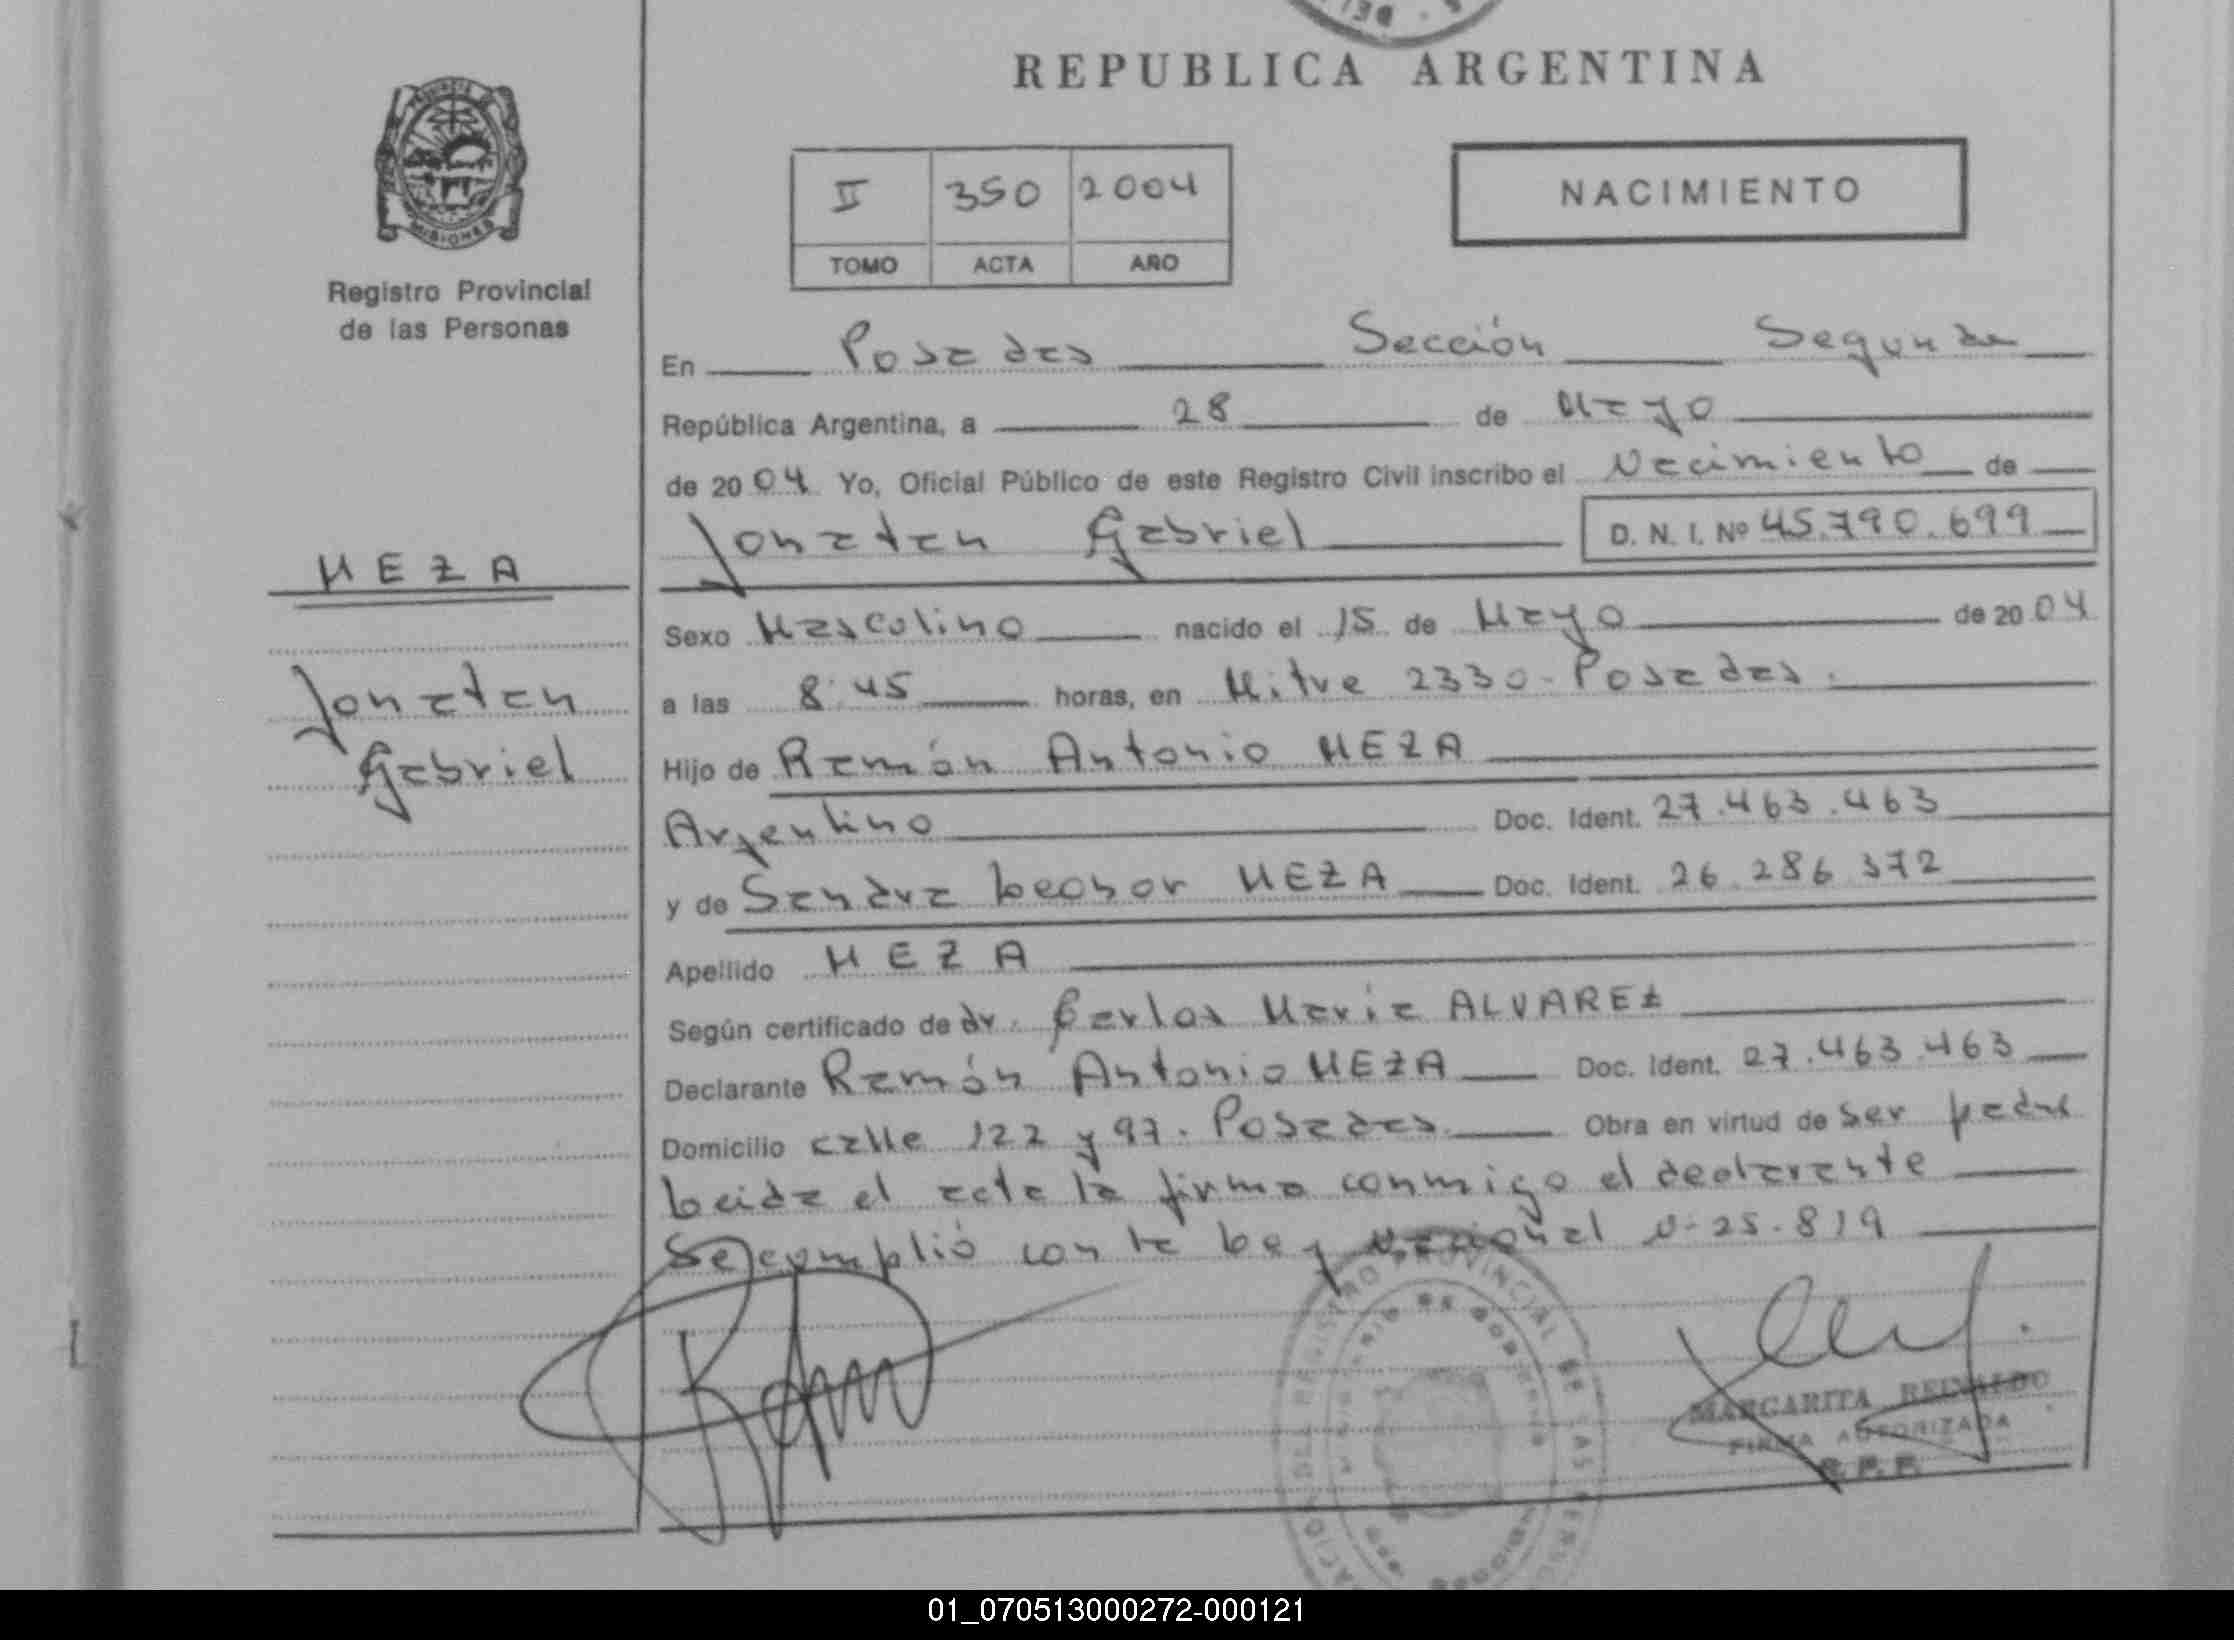 REPUBLICA ARGENTINA
PROVINCIA DE
MISIONES
Registro Provincial
de las Personas
II 350 2004
TOMO ACTA AÑO
NACIMIENTO
En Posadas Sección Segunda
República Argentina, a 28 de Mayo
de 2004 Yo, Oficial Público de este Registro Civil inscribo el Nacimiento de
Jonatan Gabriel D. N. I. Nº 45.790.699
MEZA
Jonatan
Gabriel
Sexo Masculino nacido el 15 de Mayo de 2004
a las 8:45 horas, en Mitre 2330-Posadas.
Hijo de Ramón Antonio MEZA
Argentino Doc. Ident. 27.463.463
y de Sandra Leonor MEZA Doc. Ident. 26.286.372
Apellido MEZA
Según certificado de dr. Carlos Maria ALVAREZ
Declarante Ramón Antonio MEZA Doc. Ident. 27.463.463
Domicilio calle 122 y 97. Posadas. Obra en virtud de ser padre
Leida el acta la firma conmigo el declarante
Se cumplió con la Ley Nacional N-25.819
REGISTRO PROVINCIAL DE LAS
MARGARITA REINALDO
FIRMA AUTORIZADA
R. P. P.
01_070513000272-000121